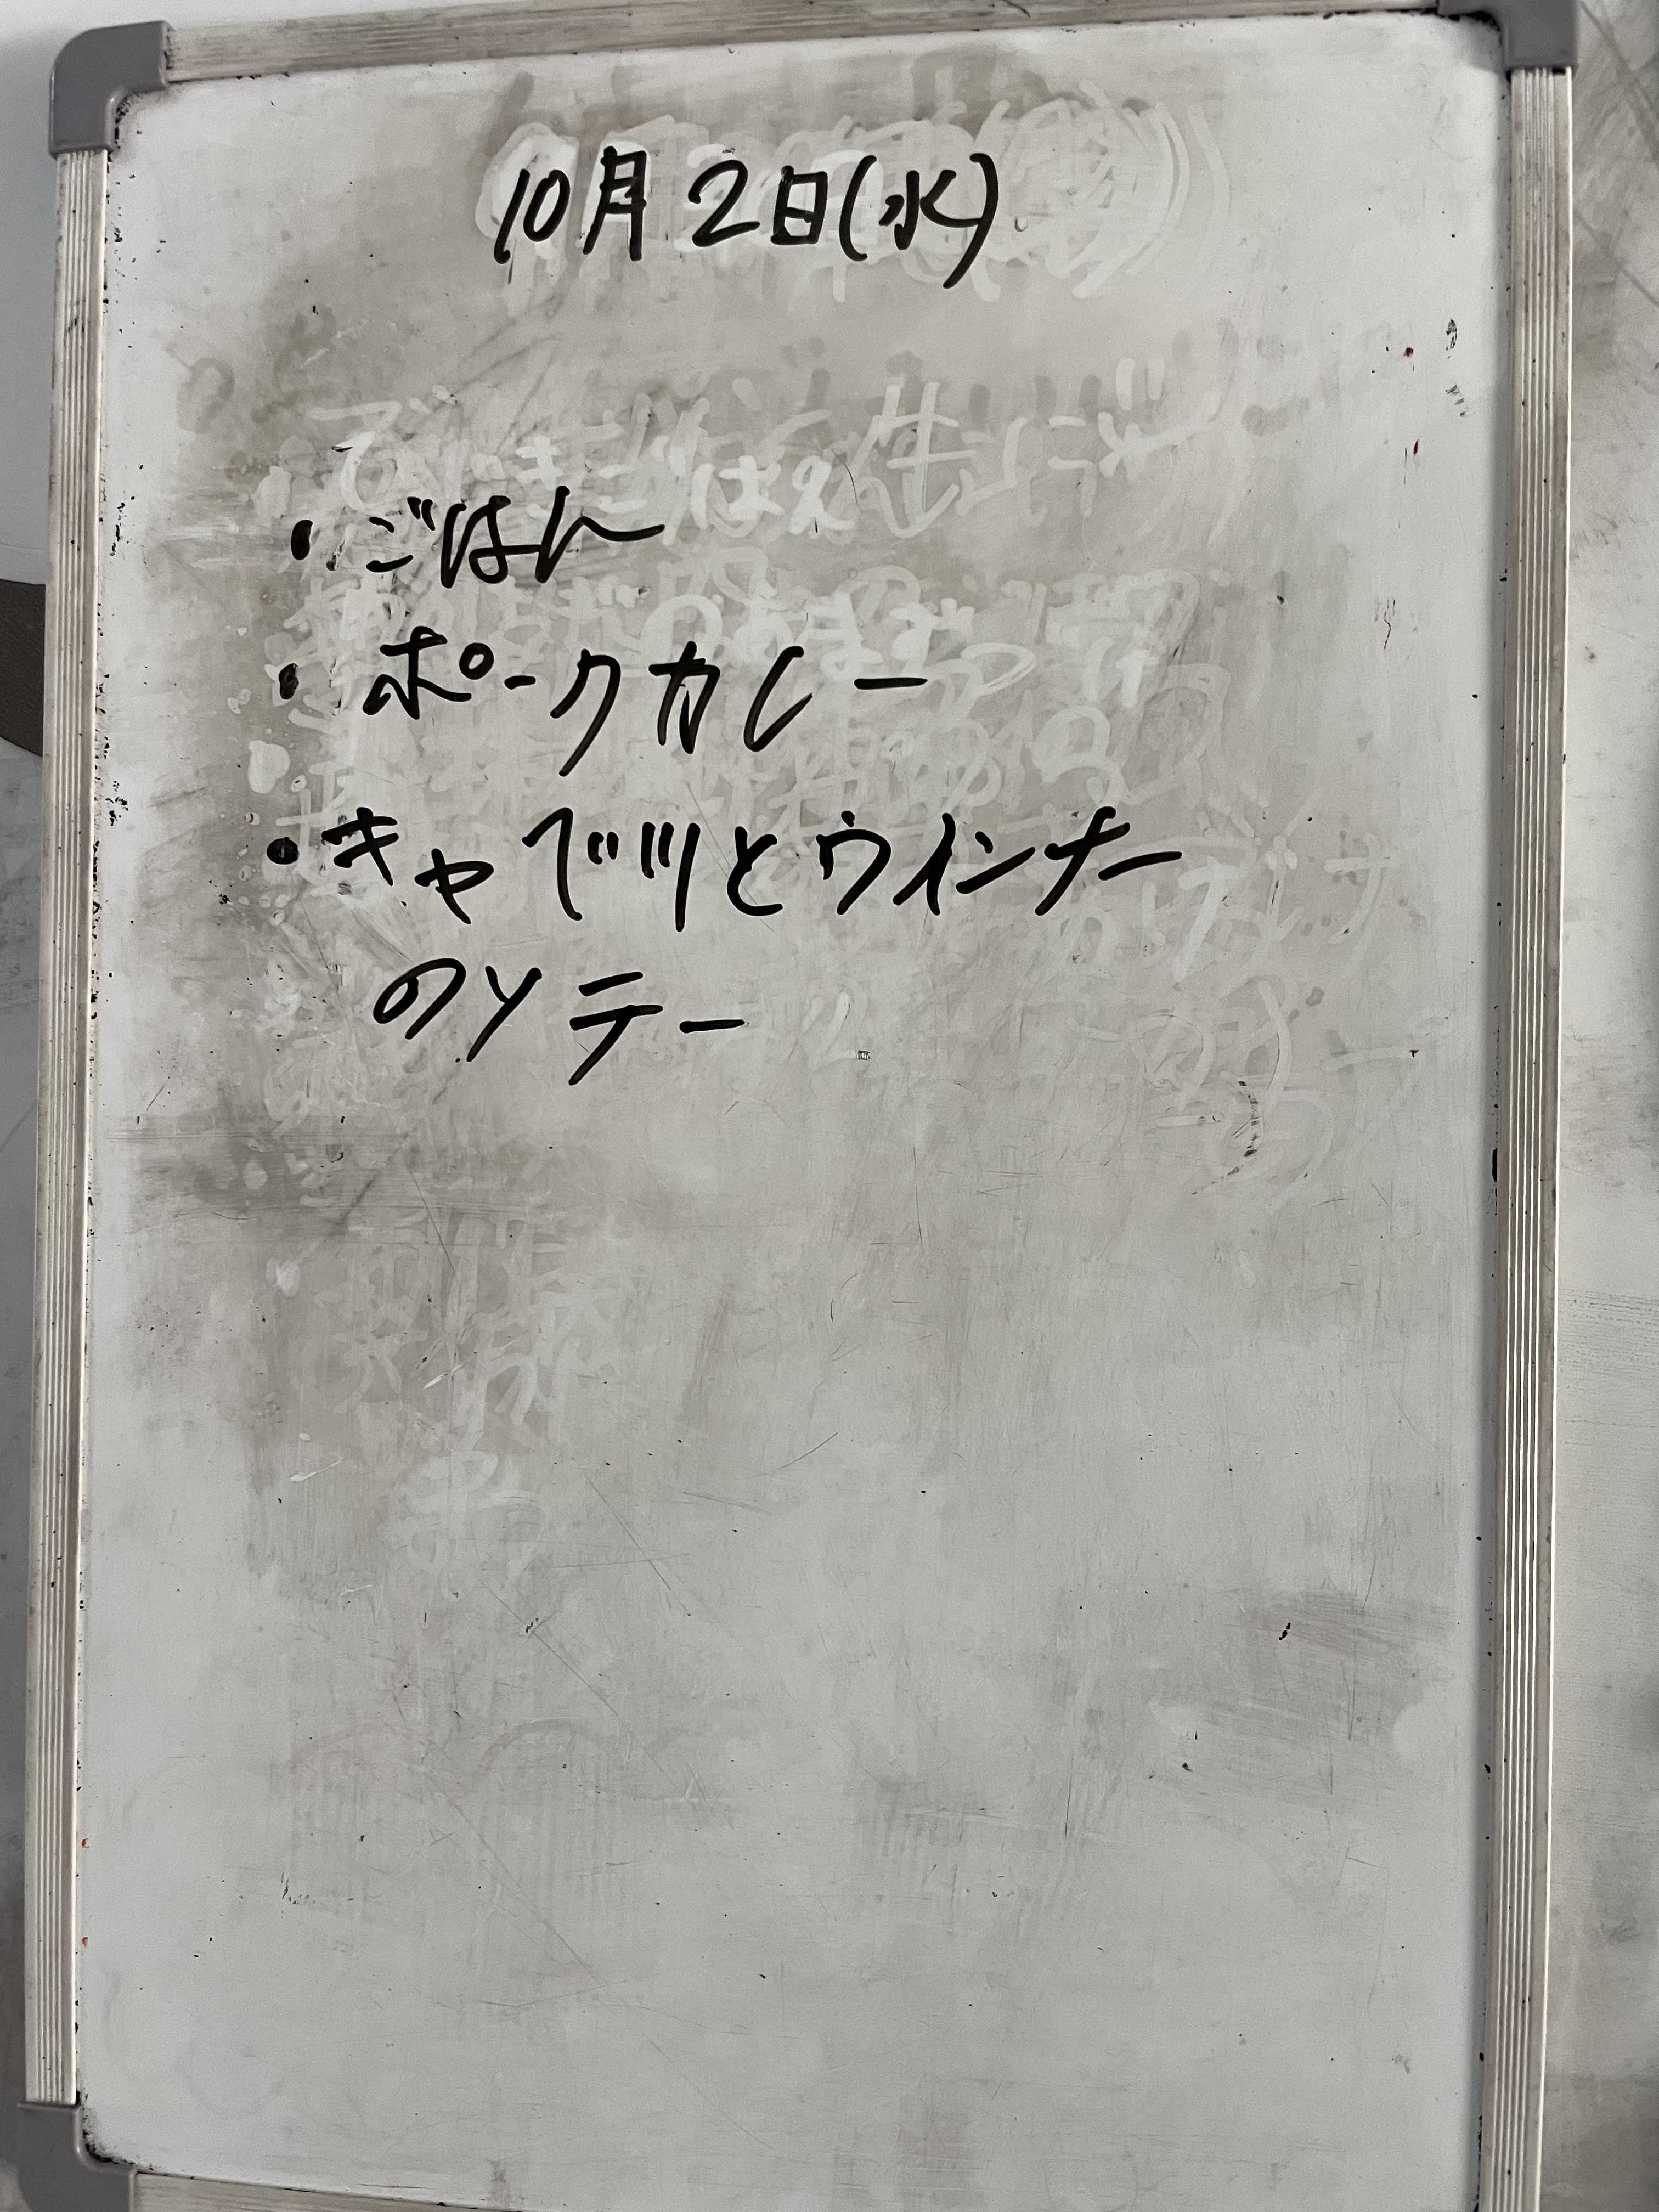 10月2日(水)
・ごはん
・ポークカレー
・キャベツとウインナー
のソテー